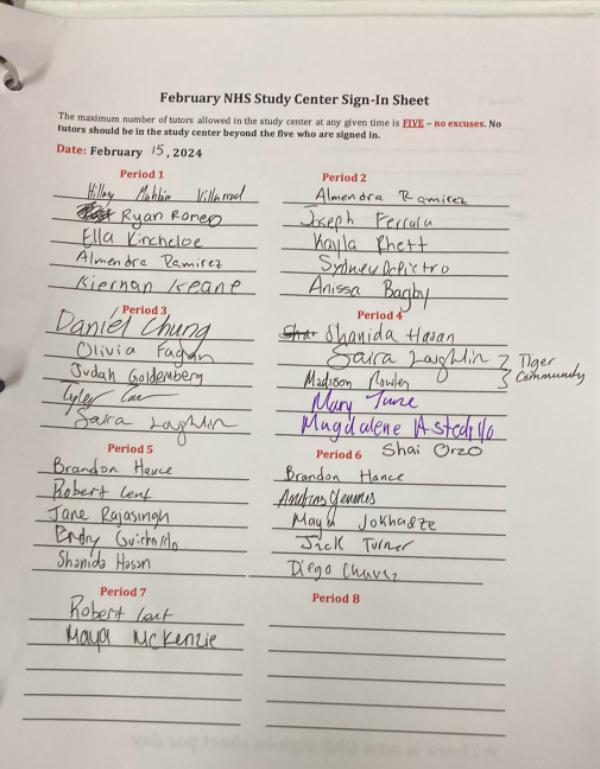 February NHS Study Center Sign-In Sheet
The maximum number of tutors allowed in the study center at any given time is FIVE – no excuses. No
tutors should be in the study center beyond the five who are signed in.
Date: February 15, 2024
Period 1
Hillary Villarreal
Ryan Romeo
Ella Kincheloe
Almendra Ramirez
Kiernan Keane
Period 2
Almendra Ramirez
Joseph Ferrara
Kayla Rhett
Sydney DiPietro
Anissa Bagby
Period 3
Daniel Chung
Olivia Fagan
Judah Goldemberg
Tyler
Saira Laughlin
Period 4
Shanida Hasan
Saira Laughlin
Madison Rowley
Tiger
Community
Mary Tune
Magdalene
Period 5
Brandon Hance
Robert Lent
Jane Rajasingh
Endry
Shanida Hasan
Shai Orzo
Period 6
Brandon Hance
Andras
Maya Jokhadze
Jack Turner
Diego Chavez
Period 7
Robert Lent
Maya McKenzie
Period 8